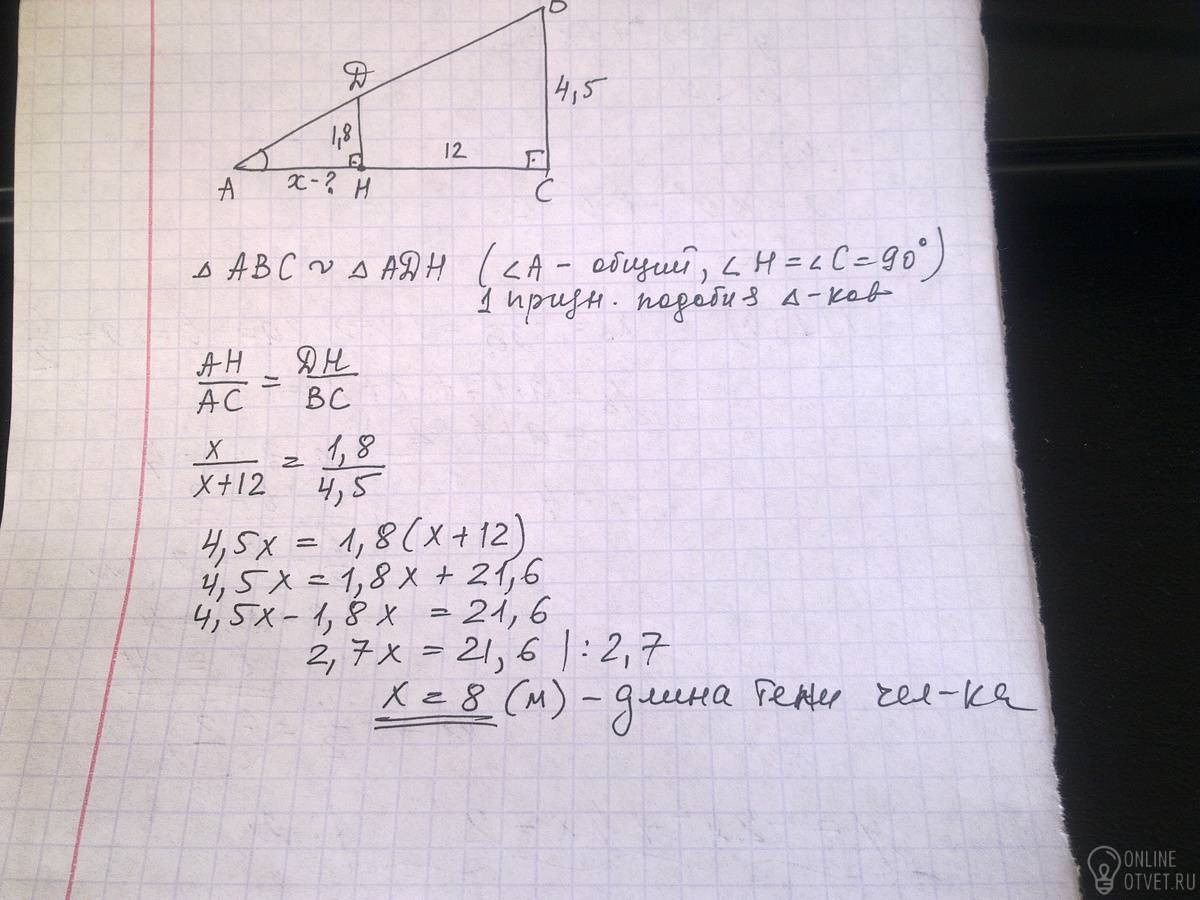 Д
4,5
1,8
12
A
x-?
H
C
△ ABC ~ △ АДН (∠A - общий, ∠H = ∠C = 90°)
1 призн. подобия △-ков
AH/AC = ДН/BC
x/x+12 = 1,8/4,5
4,5x = 1,8(x+12)
4,5x = 1,8x + 21,6
4,5x - 1,8x = 21,6
2,7x = 21,6 |: 2,7
x = 8 (м) - длина тени чел-ка
ONLINE
OTVET.RU